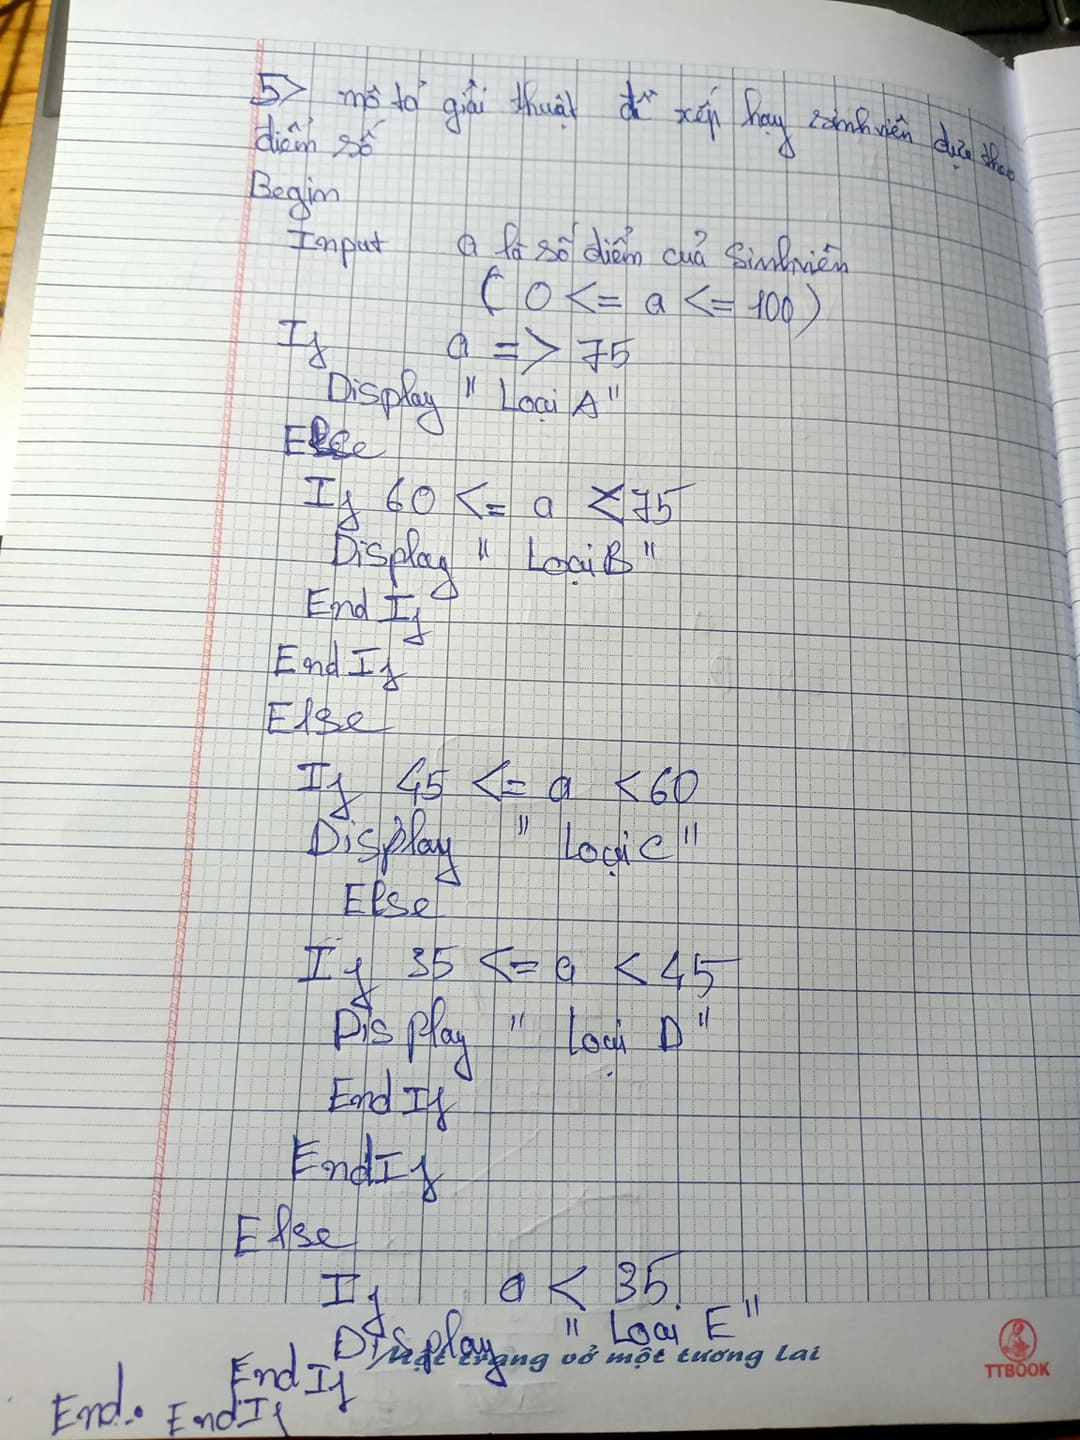 5> mô tả giải thuật để xếp hạy sinh viên dựa theo
điểm số
Begin
Input a là số điểm của Sinh viên
( 0 <= a <= 100)
If a => 75
Display " Loại A "
Else
If 60 <= a < 75
Display " Loại B "
End If
End If
Else
If 45 <= a < 60
Display " Loại C "
Else
If 35 <= a < 45
Display " Loại D "
End If
End If
Else
If a < 35
Display " Loại E "
một trang vở một tương lai
TTBOOK
End If
End. End If